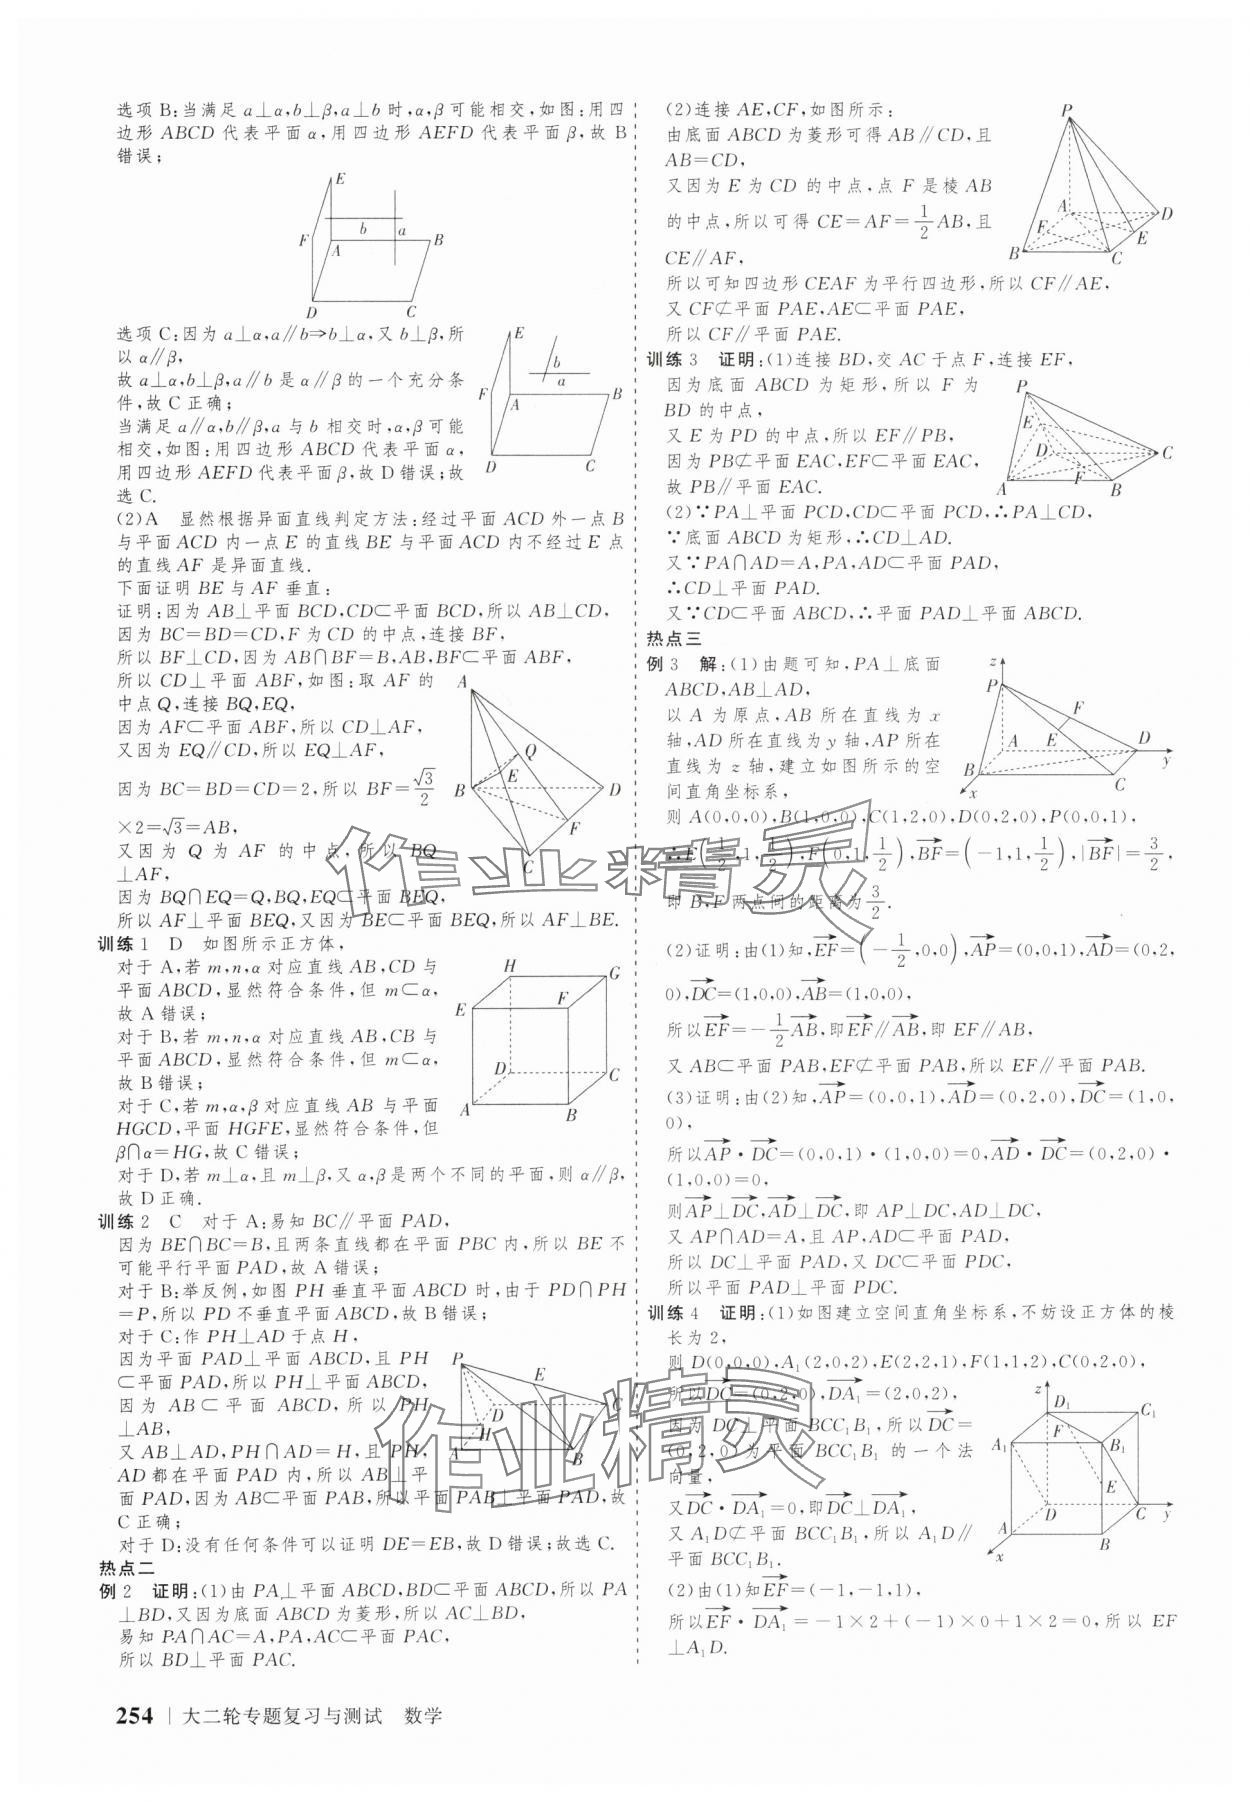 选项 B:当满足 a⊥α,b⊥β,a⊥b 时,α,β 可能相交,如图:用四
边形 ABCD 代表平面 α,用四边形 AEFD 代表平面 β,故 B
错误;
E
b
a
F
A
B
D
C
选项 C:因为 a⊥α,a∥b⇒b⊥α,又 b⊥β,所
以 α∥β,
故 a⊥α,b⊥β,a∥b 是 α∥β 的一个充分条
件,故 C 正确;
当满足 a∥α,b∥β,a 与 b 相交时,α,β 可能
相交,如图:用四边形 ABCD 代表平面 α,
用四边形 AEFD 代表平面 β,故 D 错误;故
选 C.
E
b
a
F
A
B
D
C
(2)A 显然根据异面直线判定方法:经过平面 ACD 外一点 B
与平面 ACD 内一点 E 的直线 BE 与平面 ACD 内不经过 E 点
的直线 AF 是异面直线.
下面证明 BE 与 AF 垂直:
证明:因为 AB⊥平面 BCD,CD⊂平面 BCD,所以 AB⊥CD,
因为 BC=BD=CD,F 为 CD 的中点,连接 BF,
所以 BF⊥CD,因为 AB∩BF=B,AB,BF⊂平面 ABF,
所以 CD⊥平面 ABF,如图:取 AF 的
中点 Q,连接 BQ,EQ,
因为 AF⊂平面 ABF,所以 CD⊥AF,
又因为 EQ∥CD,所以 EQ⊥AF,
因为 BC=BD=CD=2,所以 BF=√3/2
×2=√3=AB,
又因为 Q 为 AF 的中点,所以 BQ
⊥AF,
因为 BQ∩EQ=Q,BQ,EQ⊂平面 BEQ,
所以 AF⊥平面 BEQ,又因为 BE⊂平面 BEQ,所以 AF⊥BE.
A
Q
E
B
D
F
C
训练 1 D 如图所示正方体,
对于 A,若 m,n,α 对应直线 AB,CD 与
平面 ABCD,显然符合条件,但 m⊂α,
故 A 错误;
对于 B,若 m,n,α 对应直线 AB,CB 与
平面 ABCD,显然符合条件,但 m⊂α,
故 B 错误;
对于 C,若 m,α,β 对应直线 AB 与平面
HGCD,平面 HGFE,显然符合条件,但
β∩α=HG,故 C 错误;
对于 D,若 m⊥α,且 m⊥β,又 α,β 是两个不同的平面,则 α∥β,
故 D 正确.
H
G
E
F
D
C
A
B
训练 2 C 对于 A:易知 BC∥平面 PAD,
因为 BE∩BC=B,且两条直线都在平面 PBC 内,所以 BE 不
可能平行平面 PAD,故 A 错误;
对于 B:举反例,如图 PH 垂直平面 ABCD 时,由于 PD∩PH
=P,所以 PD 不垂直平面 ABCD,故 B 错误;
对于 C:作 PH⊥AD 于点 H,
因为平面 PAD⊥平面 ABCD,且 PH
⊂平面 PAD,所以 PH⊥平面 ABCD,
因为 AB⊂平面 ABCD,所以 PH
⊥AB,
又 AB⊥AD,PH∩AD=H,且 PH,
AD 都在平面 PAD 内,所以 AB⊥平
面 PAD,因为 AB⊂平面 PAB,所以平面 PAB⊥平面 PAD,故
C 正确;
对于 D:没有任何条件可以证明 DE=EB,故 D 错误;故选 C.
P
E
D
C
H
A
B
热点二
例 2 证明:(1)由 PA⊥平面 ABCD,BD⊂平面 ABCD,所以 PA
⊥BD,又因为底面 ABCD 为菱形,所以 AC⊥BD,
易知 PA∩AC=A,PA,AC⊂平面 PAC,
所以 BD⊥平面 PAC.
(2)连接 AE,CF,如图所示:
由底面 ABCD 为菱形可得 AB∥CD,且
AB=CD,
又因为 E 为 CD 的中点,点 F 是棱 AB
的中点,所以可得 CE=AF=1/2AB,且
CE∥AF,
所以可知四边形 CEAF 为平行四边形,所以 CF∥AE,
又 CF⊄平面 PAE,AE⊂平面 PAE,
所以 CF∥平面 PAE.
P
A
D
F
E
B
C
训练 3 证明:(1)连接 BD,交 AC 于点 F,连接 EF,
因为底面 ABCD 为矩形,所以 F 为
BD 的中点,
又 E 为 PD 的中点,所以 EF∥PB,
因为 PB⊄平面 EAC,EF⊂平面 EAC,
故 PB∥平面 EAC.
(2)∵PA⊥平面 PCD,CD⊂平面 PCD,∴PA⊥CD,
∵底面 ABCD 为矩形,∴CD⊥AD.
又∵PA∩AD=A,PA,AD⊂平面 PAD,
∴CD⊥平面 PAD.
又∵CD⊂平面 ABCD,∴平面 PAD⊥平面 ABCD.
P
E
D
C
F
A
B
热点三
例 3 解:(1)由题可知,PA⊥底面
ABCD,AB⊥AD,
以 A 为原点,AB 所在直线为 x
轴,AD 所在直线为 y 轴,AP 所在
直线为 z 轴,建立如图所示的空
间直角坐标系,
则 A(0,0,0),B(1,0,0),C(1,2,0),D(0,2,0),P(0,0,1),
∴E(1/2,1,1/2),F(0,1,1/2),BF→=(-1,1,1/2),|BF→|=3/2,
即 B,F 两点间的距离为 3/2.
(2)证明:由(1)知,EF→=(-1/2,0,0),AP→=(0,0,1),AD→=(0,2,
0),DC→=(1,0,0),AB→=(1,0,0),
所以 EF→=-1/2AB→,即 EF→∥AB→,即 EF∥AB,
又 AB⊂平面 PAB,EF⊄平面 PAB,所以 EF∥平面 PAB.
(3)证明:由(2)知,AP→=(0,0,1),AD→=(0,2,0),DC→=(1,0,
0),
所以 AP→·DC→=(0,0,1)·(1,0,0)=0,AD→·DC→=(0,2,0)·
(1,0,0)=0,
则 AP→⊥DC→,AD→⊥DC→,即 AP⊥DC,AD⊥DC,
又 AP∩AD=A,且 AP,AD⊂平面 PAD,
所以 DC⊥平面 PAD,又 DC⊂平面 PDC,
所以平面 PAD⊥平面 PDC.
z
P
F
E
A
D
y
B
C
x
训练 4 证明:(1)如图建立空间直角坐标系,不妨设正方体的棱
长为 2,
则 D(0,0,0),A₁(2,0,2),E(2,2,1),F(1,1,2),C(0,2,0),
所以 DC→=(0,2,0),DA₁→=(2,0,2),
因为 DC⊥平面 BCC₁B₁,所以 DC→=
(0,2,0)为平面 BCC₁B₁ 的一个法
向量,
又 DC→·DA₁→=0,即 DC→⊥DA₁→,
又 A₁D⊄平面 BCC₁B₁,所以 A₁D∥
平面 BCC₁B₁.
(2)由(1)知 EF→=(-1,-1,1),
所以 EF→·DA₁→=-1×2+(-1)×0+1×2=0,所以 EF
⊥A₁D.
z
D₁
C₁
F
A₁
B₁
E
D
C
y
A
B
x
作业精灵
作业精灵
254 | 大二轮专题复习与测试 数学